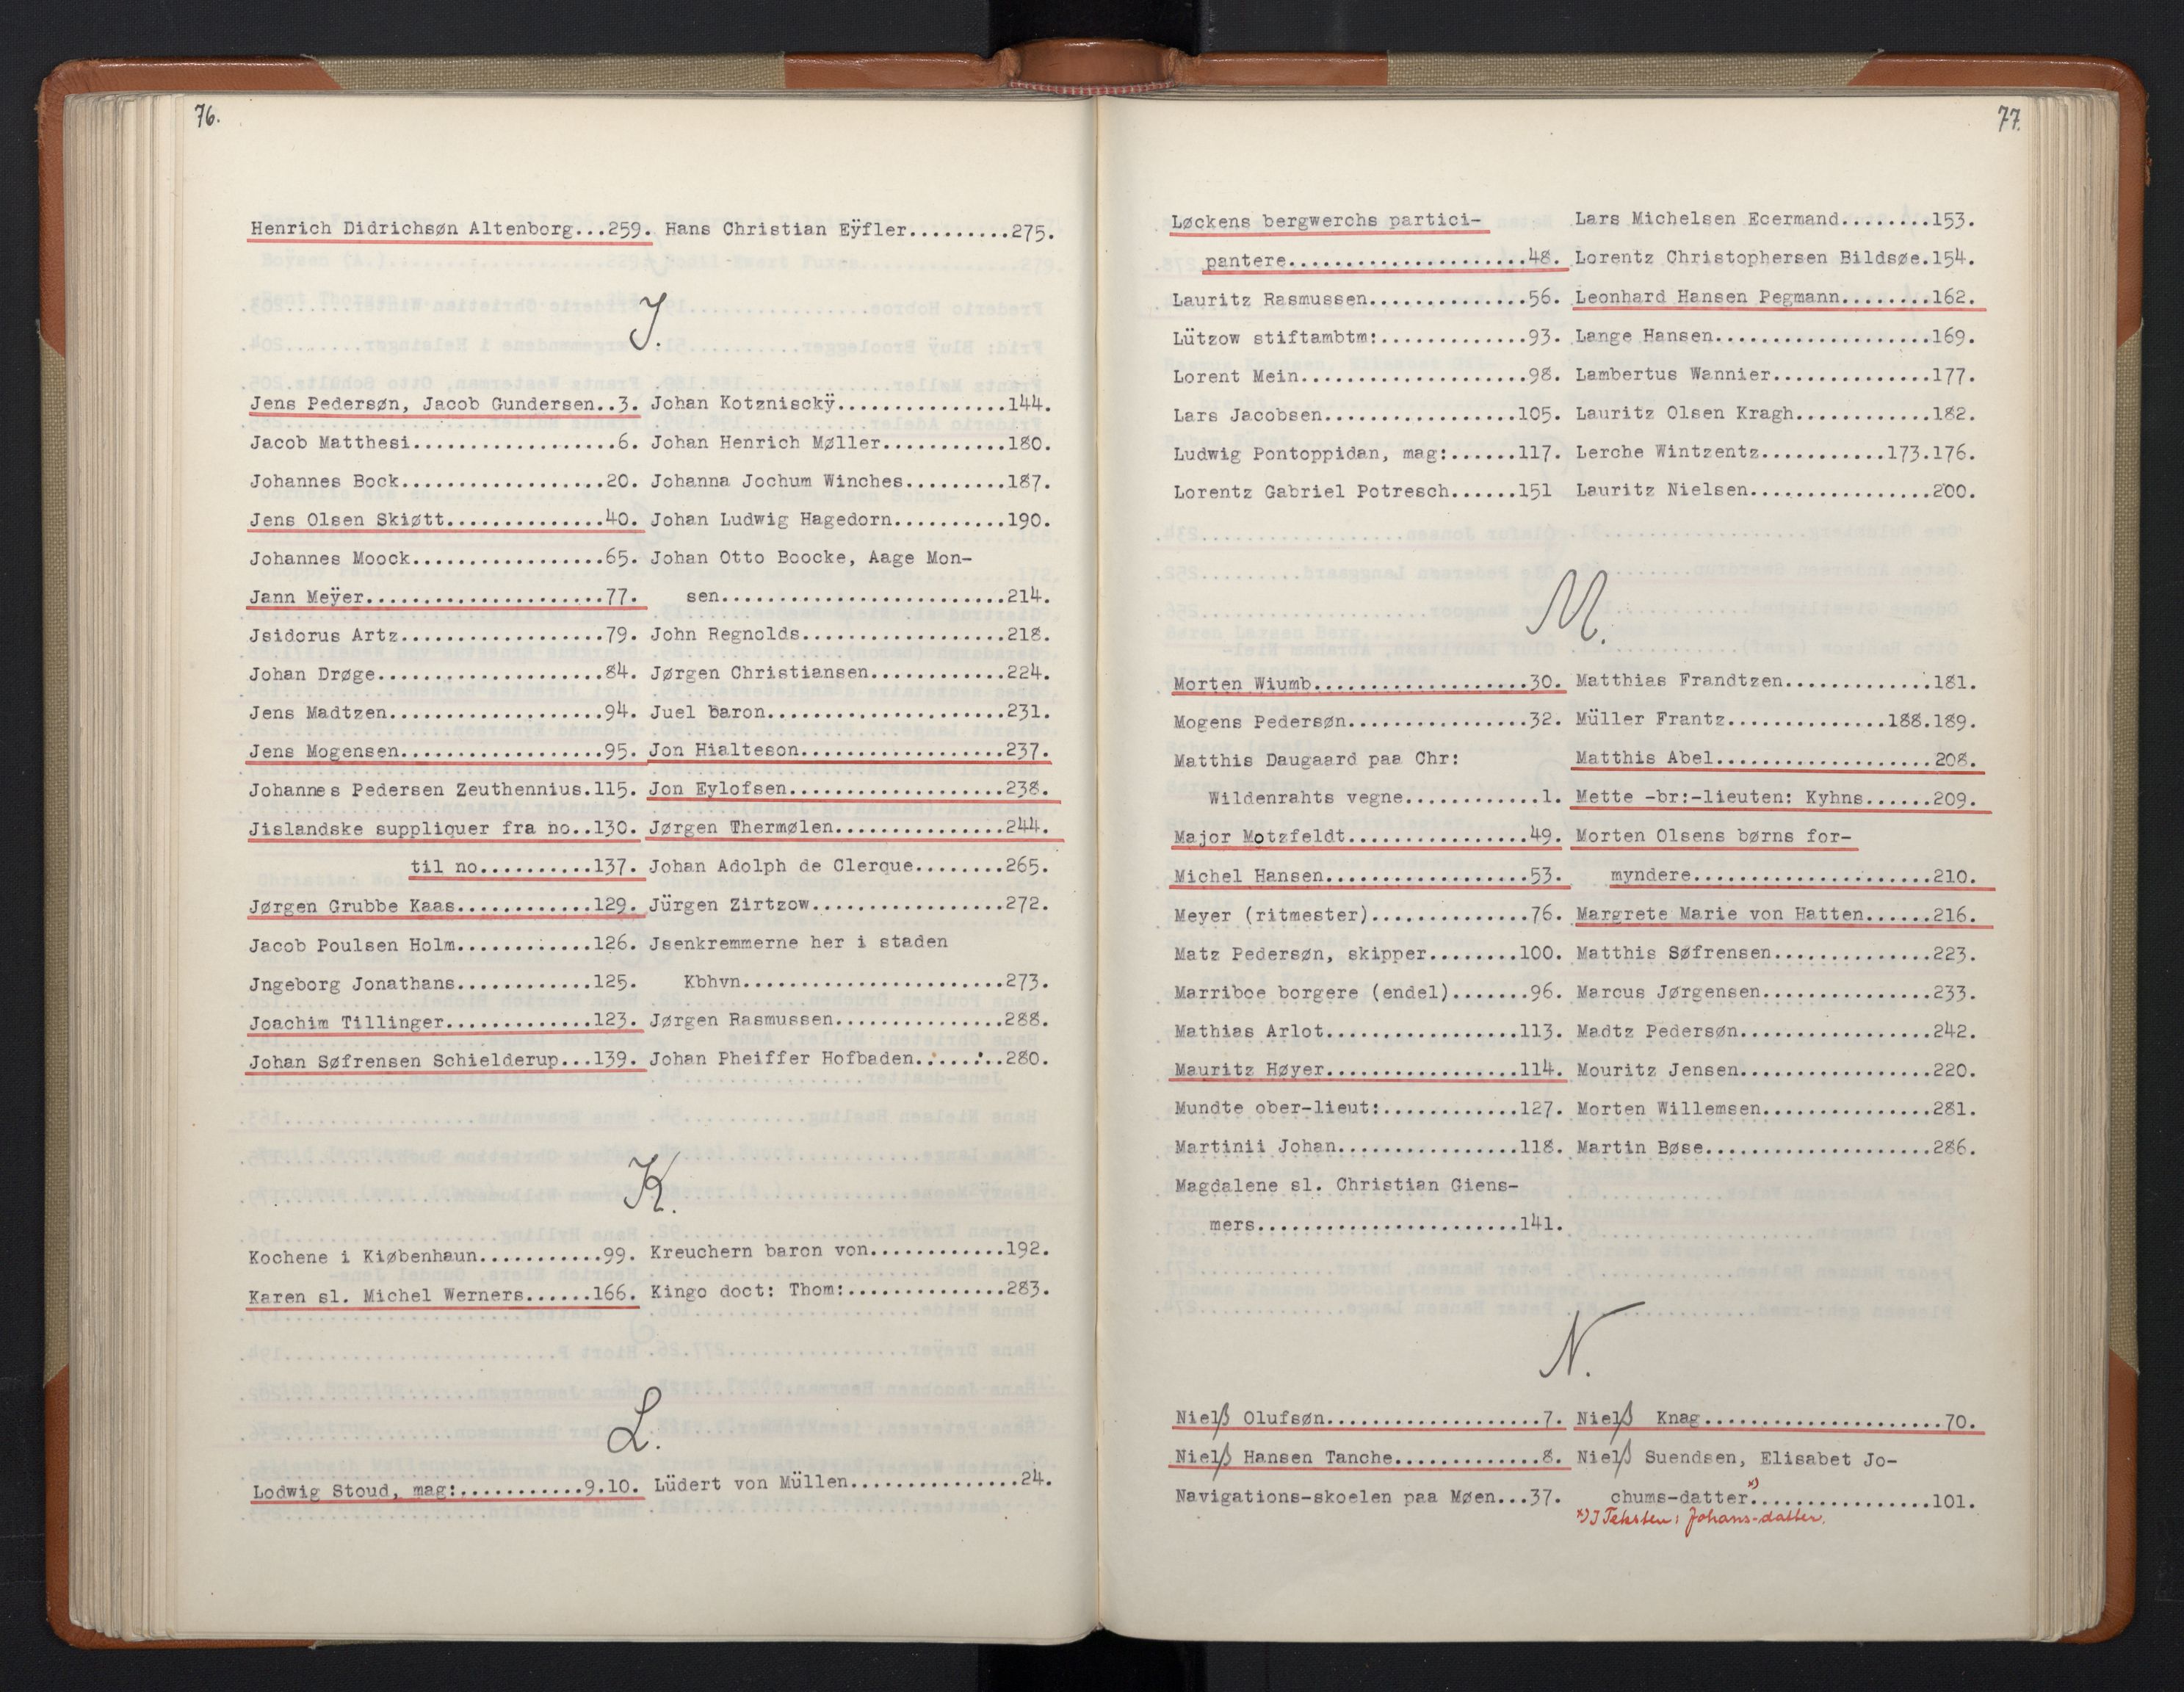 76.
Henrich Didrichsøn Altenborg...259.
Hans Christian Eÿfler.........275.
J.
Jens Pedersøn, Jacob Gundersen..3.
Jacob Matthesi..................6.
Johannes Bock..................20.
Jens Olsen Skiøtt..............40.
Johannes Moock.................65.
Jann Meÿer.....................77.
Jsidorus Artz..................79.
Johan Drøge....................84.
Jens Madtzen...................94.
Jens Mogensen..................95.
Johannes Pedersen Zeuthennius.115.
Jislandske suppliquer fra no..130.
til no..........137.
Jørgen Grubbe Kaas............129.
Jacob Poulsen Holm............126.
Jngeborg Jonathans............125.
Joachim Tillinger.............123.
Johan Søfrensen Schielderup...139.
Johan Kotznisckÿ...............144.
Johan Henrich Møller...........180.
Johanna Jochum Winches.........187.
Johan Ludwig Hagedorn..........190.
Johan Otto Boocke, Aage Mon-
sen.........................214.
John Regnolds..................218.
Jørgen Christiansen............224.
Juel baron.....................231.
Jon Hialteson..................237.
Jon Eylofsen...................238.
Jørgen Thermølen...............244.
Johan Adolph de Clerque........265.
Jürgen Zirtzow.................272.
Jsenkremmerne her i staden
Kbhvn.......................273.
Jørgen Rasmussen...............288.
Johan Pheiffer Hofbaden........280.
K.
Kochene i Kiøbenhaun...........99.
Karen sl. Michel Werners......166.
Kreuchern baron von............192.
Kingo doct: Thom:..............283.
L.
Lodwig Stoud, mag:...........9.10.
Lüdert von Müllen...............24.
77.
Løckens bergwerchs partici-
pantere.....................48.
Lauritz Rasmussen..............56.
Lützow stiftambtm:.............93.
Lorent Mein....................98.
Lars Jacobsen.................105.
Ludwig Pontoppidan, mag:......117.
Lorentz Gabriel Potresch......151
Lars Michelsen Ecermand........153.
Lorentz Christophersen Bildsøe.154.
Leonhard Hansen Pegmann........162.
Lange Hansen...................169.
Lambertus Wannier..............177.
Lauritz Olsen Kragh............182.
Lerche Wintzentz...........173.176.
Lauritz Nielsen................200.
M.
Morten Wiumb...................30.
Mogens Pedersøn................32.
Matthis Daugaard paa Chr:
Wildenrahts vegne............1.
Major Motzfeldt................49.
Michel Hansen..................53.
Meyer (ritmester)..............76.
Matz Pedersøn, skipper........100.
Marriboe borgere (endel).......96.
Mathias Arlot.................113.
Mauritz Høyer.................114.
Mundte ober-lieut:............127.
Martinii Johan................118.
Magdalene sl. Christian Giens-
mers.......................141.
Matthias Frandtzen.............181.
Müller Frantz..............188.189.
Matthis Abel...................208.
Mette -br:-lieuten: Kyhns......209.
Morten Olsens børns for-
myndere.....................210.
Margrete Marie von Hatten......216.
Matthis Søfrensen..............223.
Marcus Jørgensen...............233.
Madtz Pedersøn.................242.
Mouritz Jensen.................220.
Morten Willemsen...............281.
Martin Bøse....................286.
N.
Nielß Olufsøn...................7.
Nielß Hansen Tanche.............8.
Navigations-skoelen paa Møen...37.
Nielß Knag.....................70.
Nielß Suendsen, Elisabet Jo-
chums-datter x)................101.
x) I Teksten: Johans-datter.